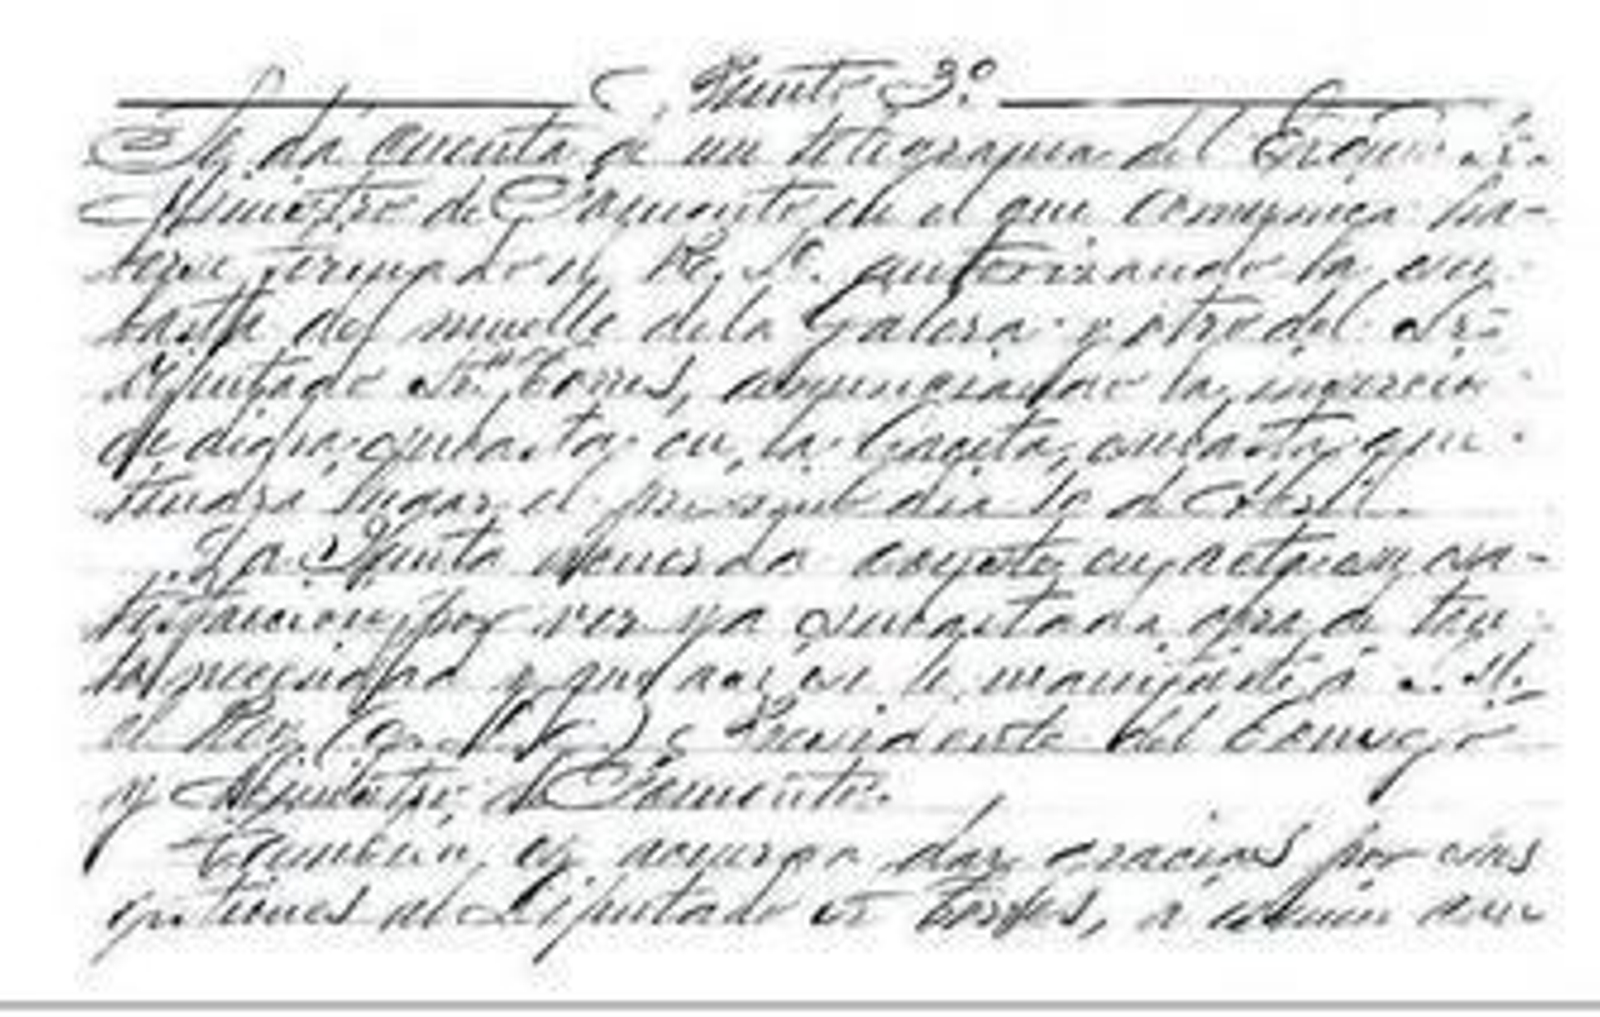 Punto 3º.
Se da cuenta de un telegrama del Excmo. Sr.
Ministro de Fomento en el que comunica ha-
berse firmado el R. D. autorizando la su-
basta del muelle de la Galera y otro del Sr.
Diputado Torres, anunciando la
de dicha subasta en la Gaceta, subasta que
tendrá lugar el día 10 de Abril.
La Junta acuerda conste en acta su sa-
tisfacción por ver ya subastada obra de tan-
ta necesidad y que así se le manifieste á S. M.
el Rey (q. D. g.) Presidente del Consejo
y Ministro de Fomento.
También se acuerda dar gracias por sus
gestiones al Diputado Sr. Torres, á quien